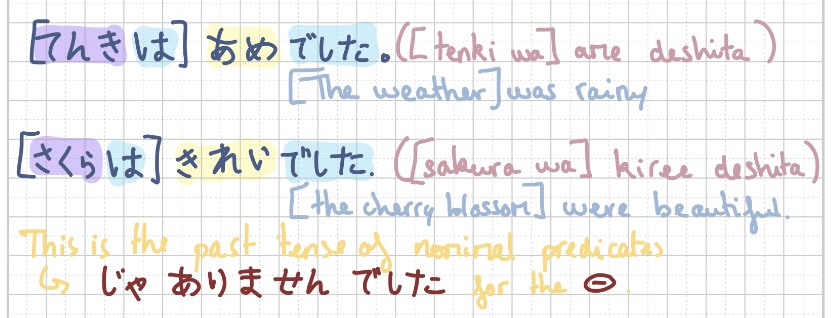 [てんきは] あめ でした。([tenki wa] ame deshita)
[The weather] was rainy
[さくらは] きれい でした. ([sakura wa] kiree deshita)
[the cherry blossom] were beautiful.
This is the past tense of nominal predicates
↳ じゃ ありません でした for the ⊖.